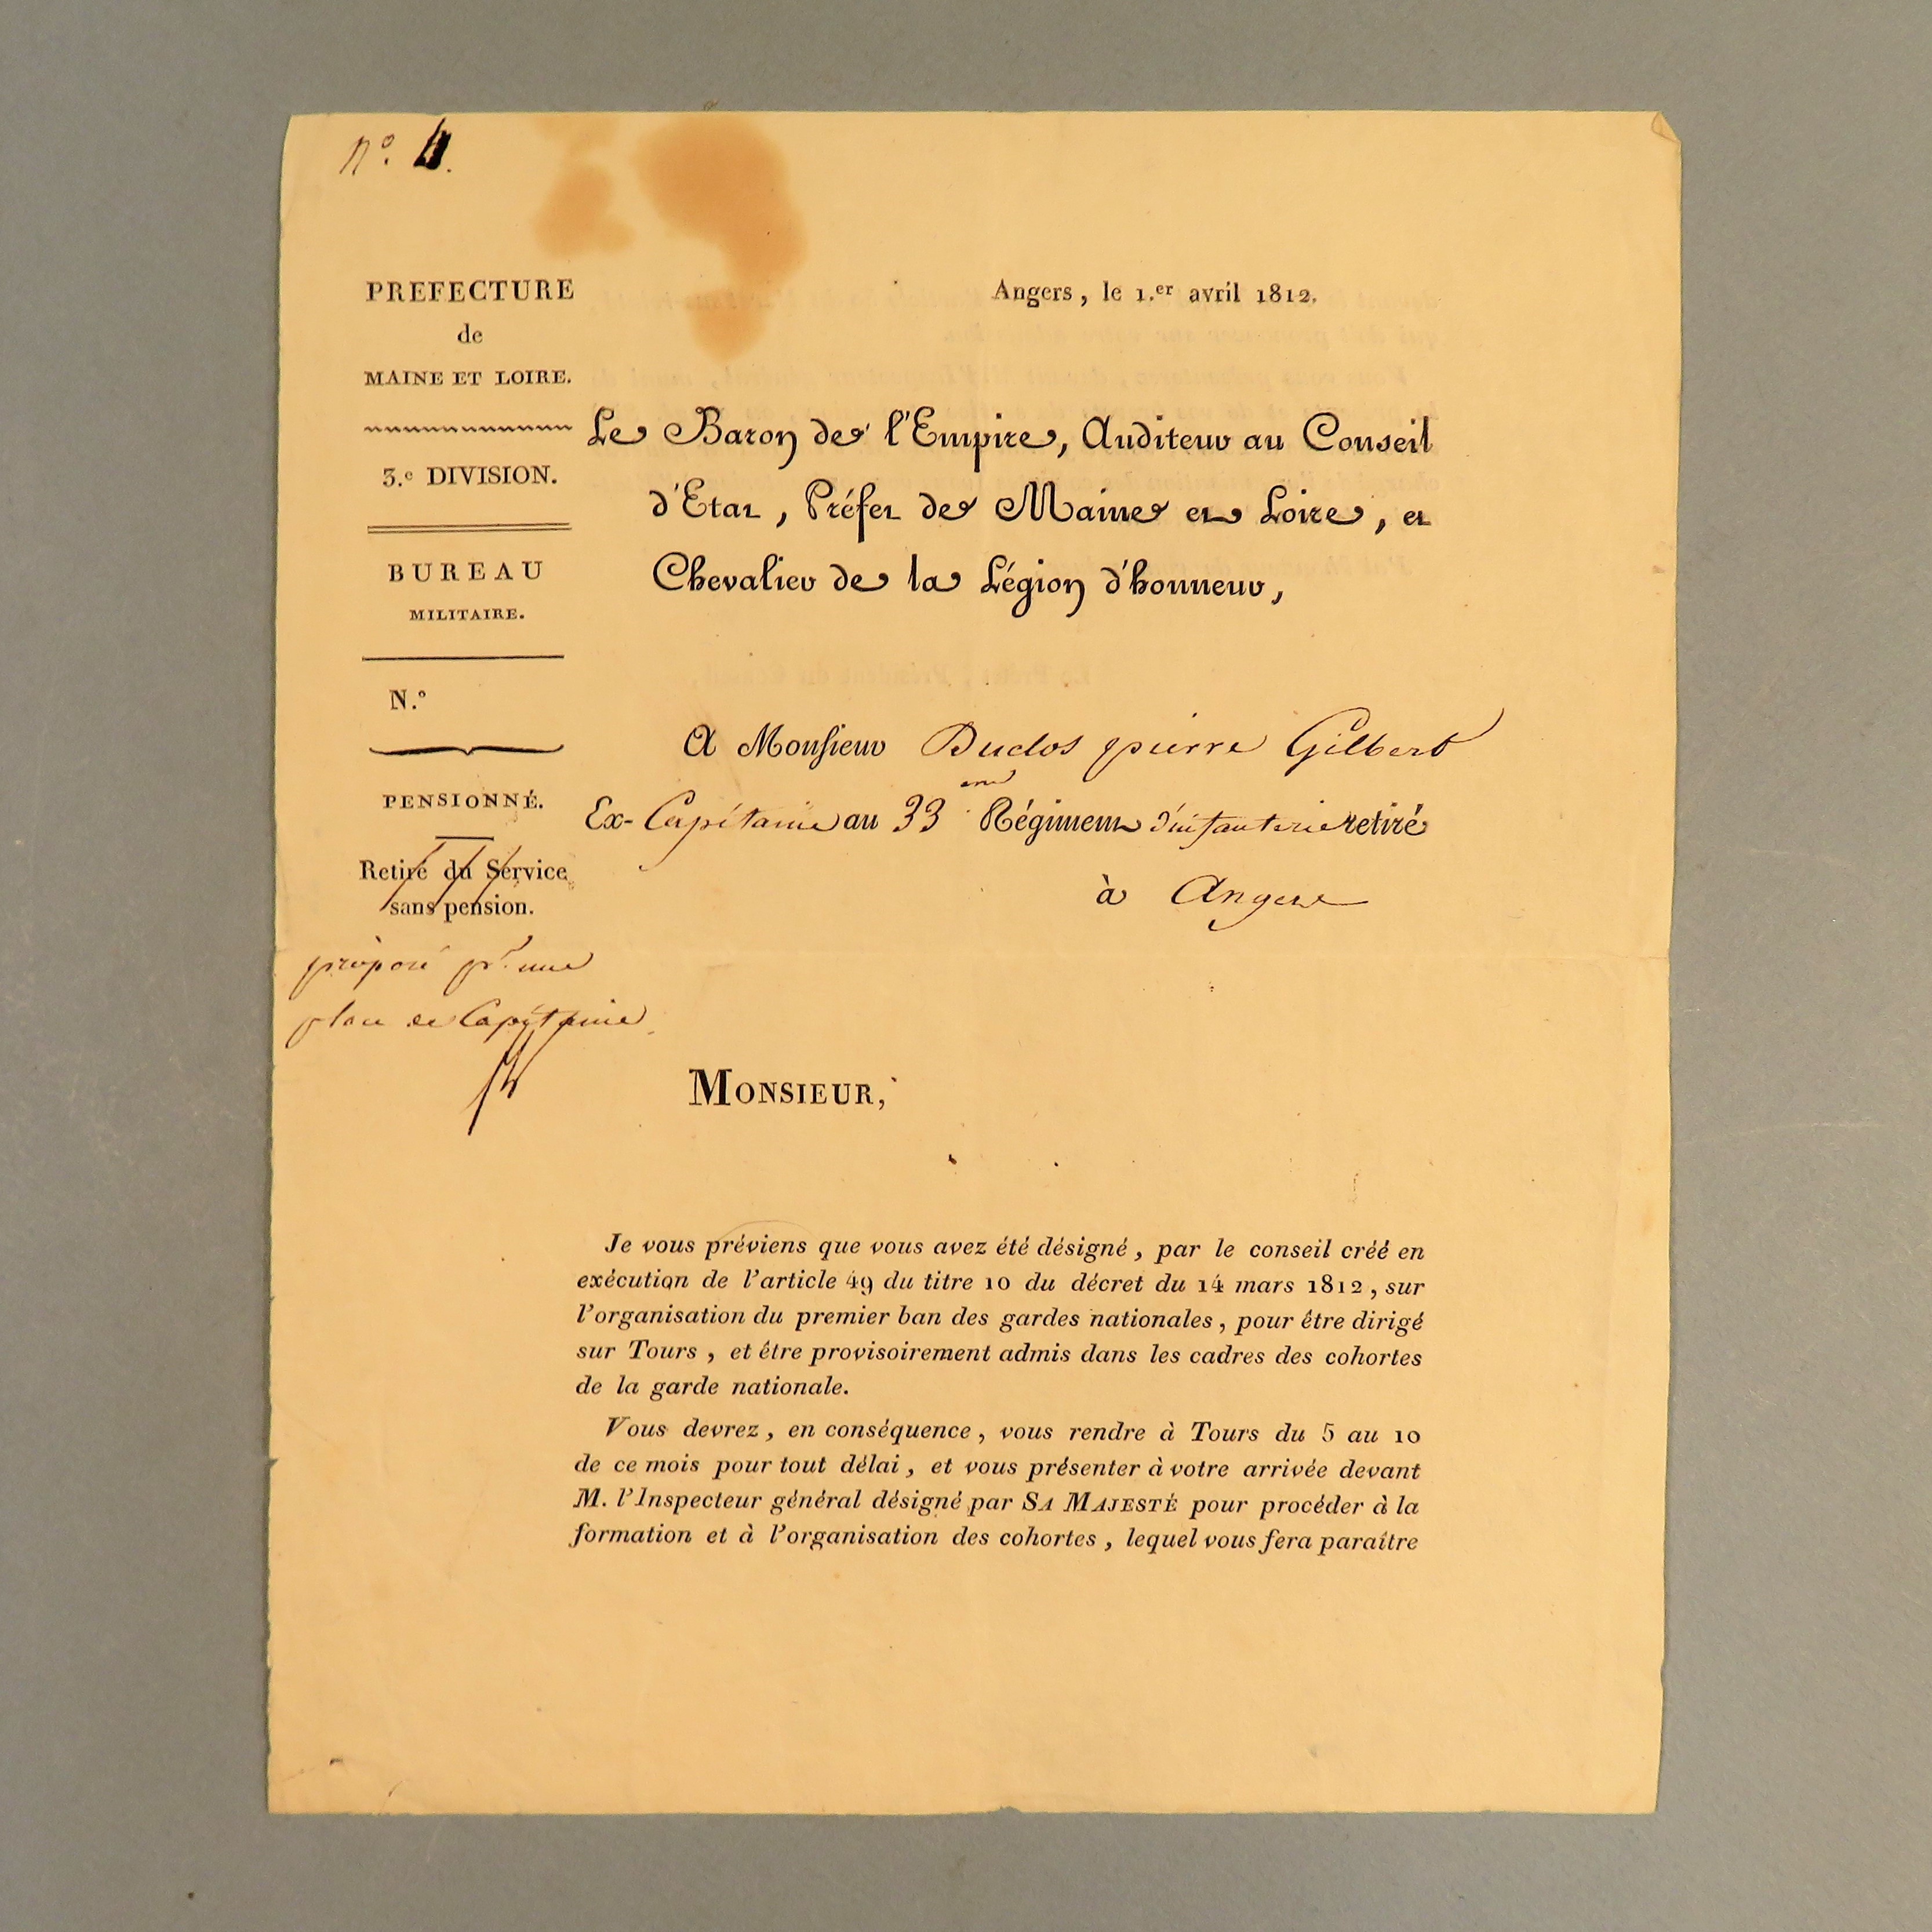 n.° 4.
PREFECTURE
de
MAINE ET LOIRE.
3.e DIVISION.
BUREAU
MILITAIRE.
N.°
PENSIONNÉ.
Retiré du Service
sans pension.
proposé pr. une
place de Capitaine
Angers, le 1.er avril 1812.
Le Baron de l'Empire, Auditeur au Conseil
d'Etat, Préfet de Maine et Loire, et
Chevalier de la Légion d'honneur,
A Monsieur Duclos pierre Gilbert
Ex-Capitaine au 33 eme Régiment d'infanterie retiré
à Angers
MONSIEUR,
Je vous préviens que vous avez été désigné, par le conseil créé en
exécution de l'article 49 du titre 10 du décret du 14 mars 1812, sur
l'organisation du premier ban des gardes nationales, pour être dirigé
sur Tours, et être provisoirement admis dans les cadres des cohortes
de la garde nationale.
Vous devrez, en conséquence, vous rendre à Tours du 5 au 10
de ce mois pour tout délai, et vous présenter à votre arrivée devant
M. l'Inspecteur général désigné par SA MAJESTÉ pour procéder à la
formation et à l'organisation des cohortes, lequel vous fera paraître